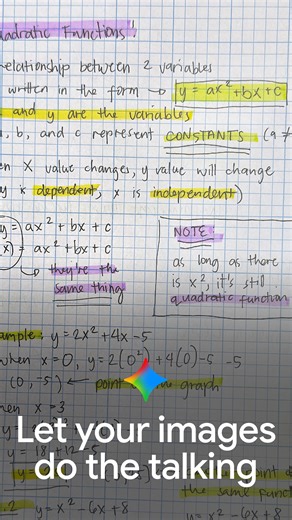 uadratic Functions"
relationship between 2 variables
written in the form → y = ax² + bx + c
and y are the variables
, b, and c represent CONSTANTS (a ≠
en X value changes, y value will change
y is dependent, x is independent)
y = ax² + bx + c
(x) = ax² + bx + c
→ they're the
same thing
NOTE:
as long as there
is x², it's still
quadratic function
ample: y = 2x² + 4x - 5
when x = 0, y = 2(0²) + 4(0) - 5 -5
(0, -5) ← point graph
hen x = 3
Let your images
do the talking
y = x² - 6x + 8
y = x² - 6x + 8